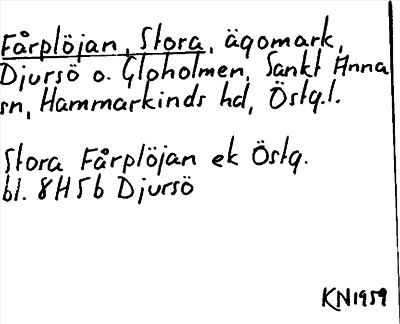 Fårplöjan, Stora, ägomark,
Djursö o. Gloholmen, Sankt Anna
sn, Hammarkinds hd, Östg.l.
Stora Fårplöjan ek Östg.
bl. 8H5b Djursö
KN1959